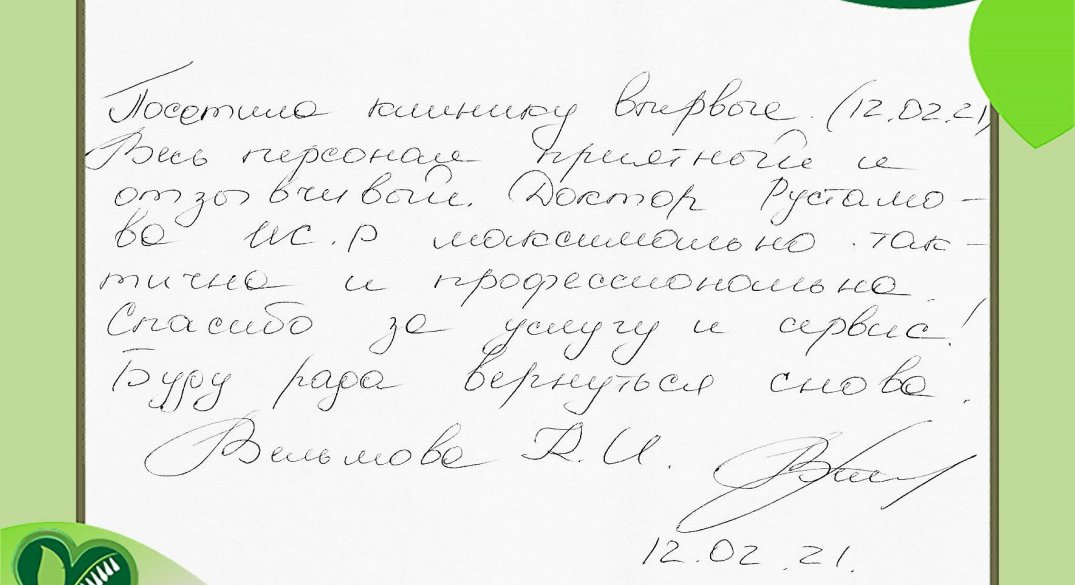 Посетила клинику впервые. (12.02.21)
Весь персонал приятный и
отзывчивый. Доктор Рустамо-
ва М.С.Р максимально так-
тична и профессиональна.
Спасибо за услугу и сервис!
Буду рада вернуться снова.
Вельмова К.И.
12.02.21.